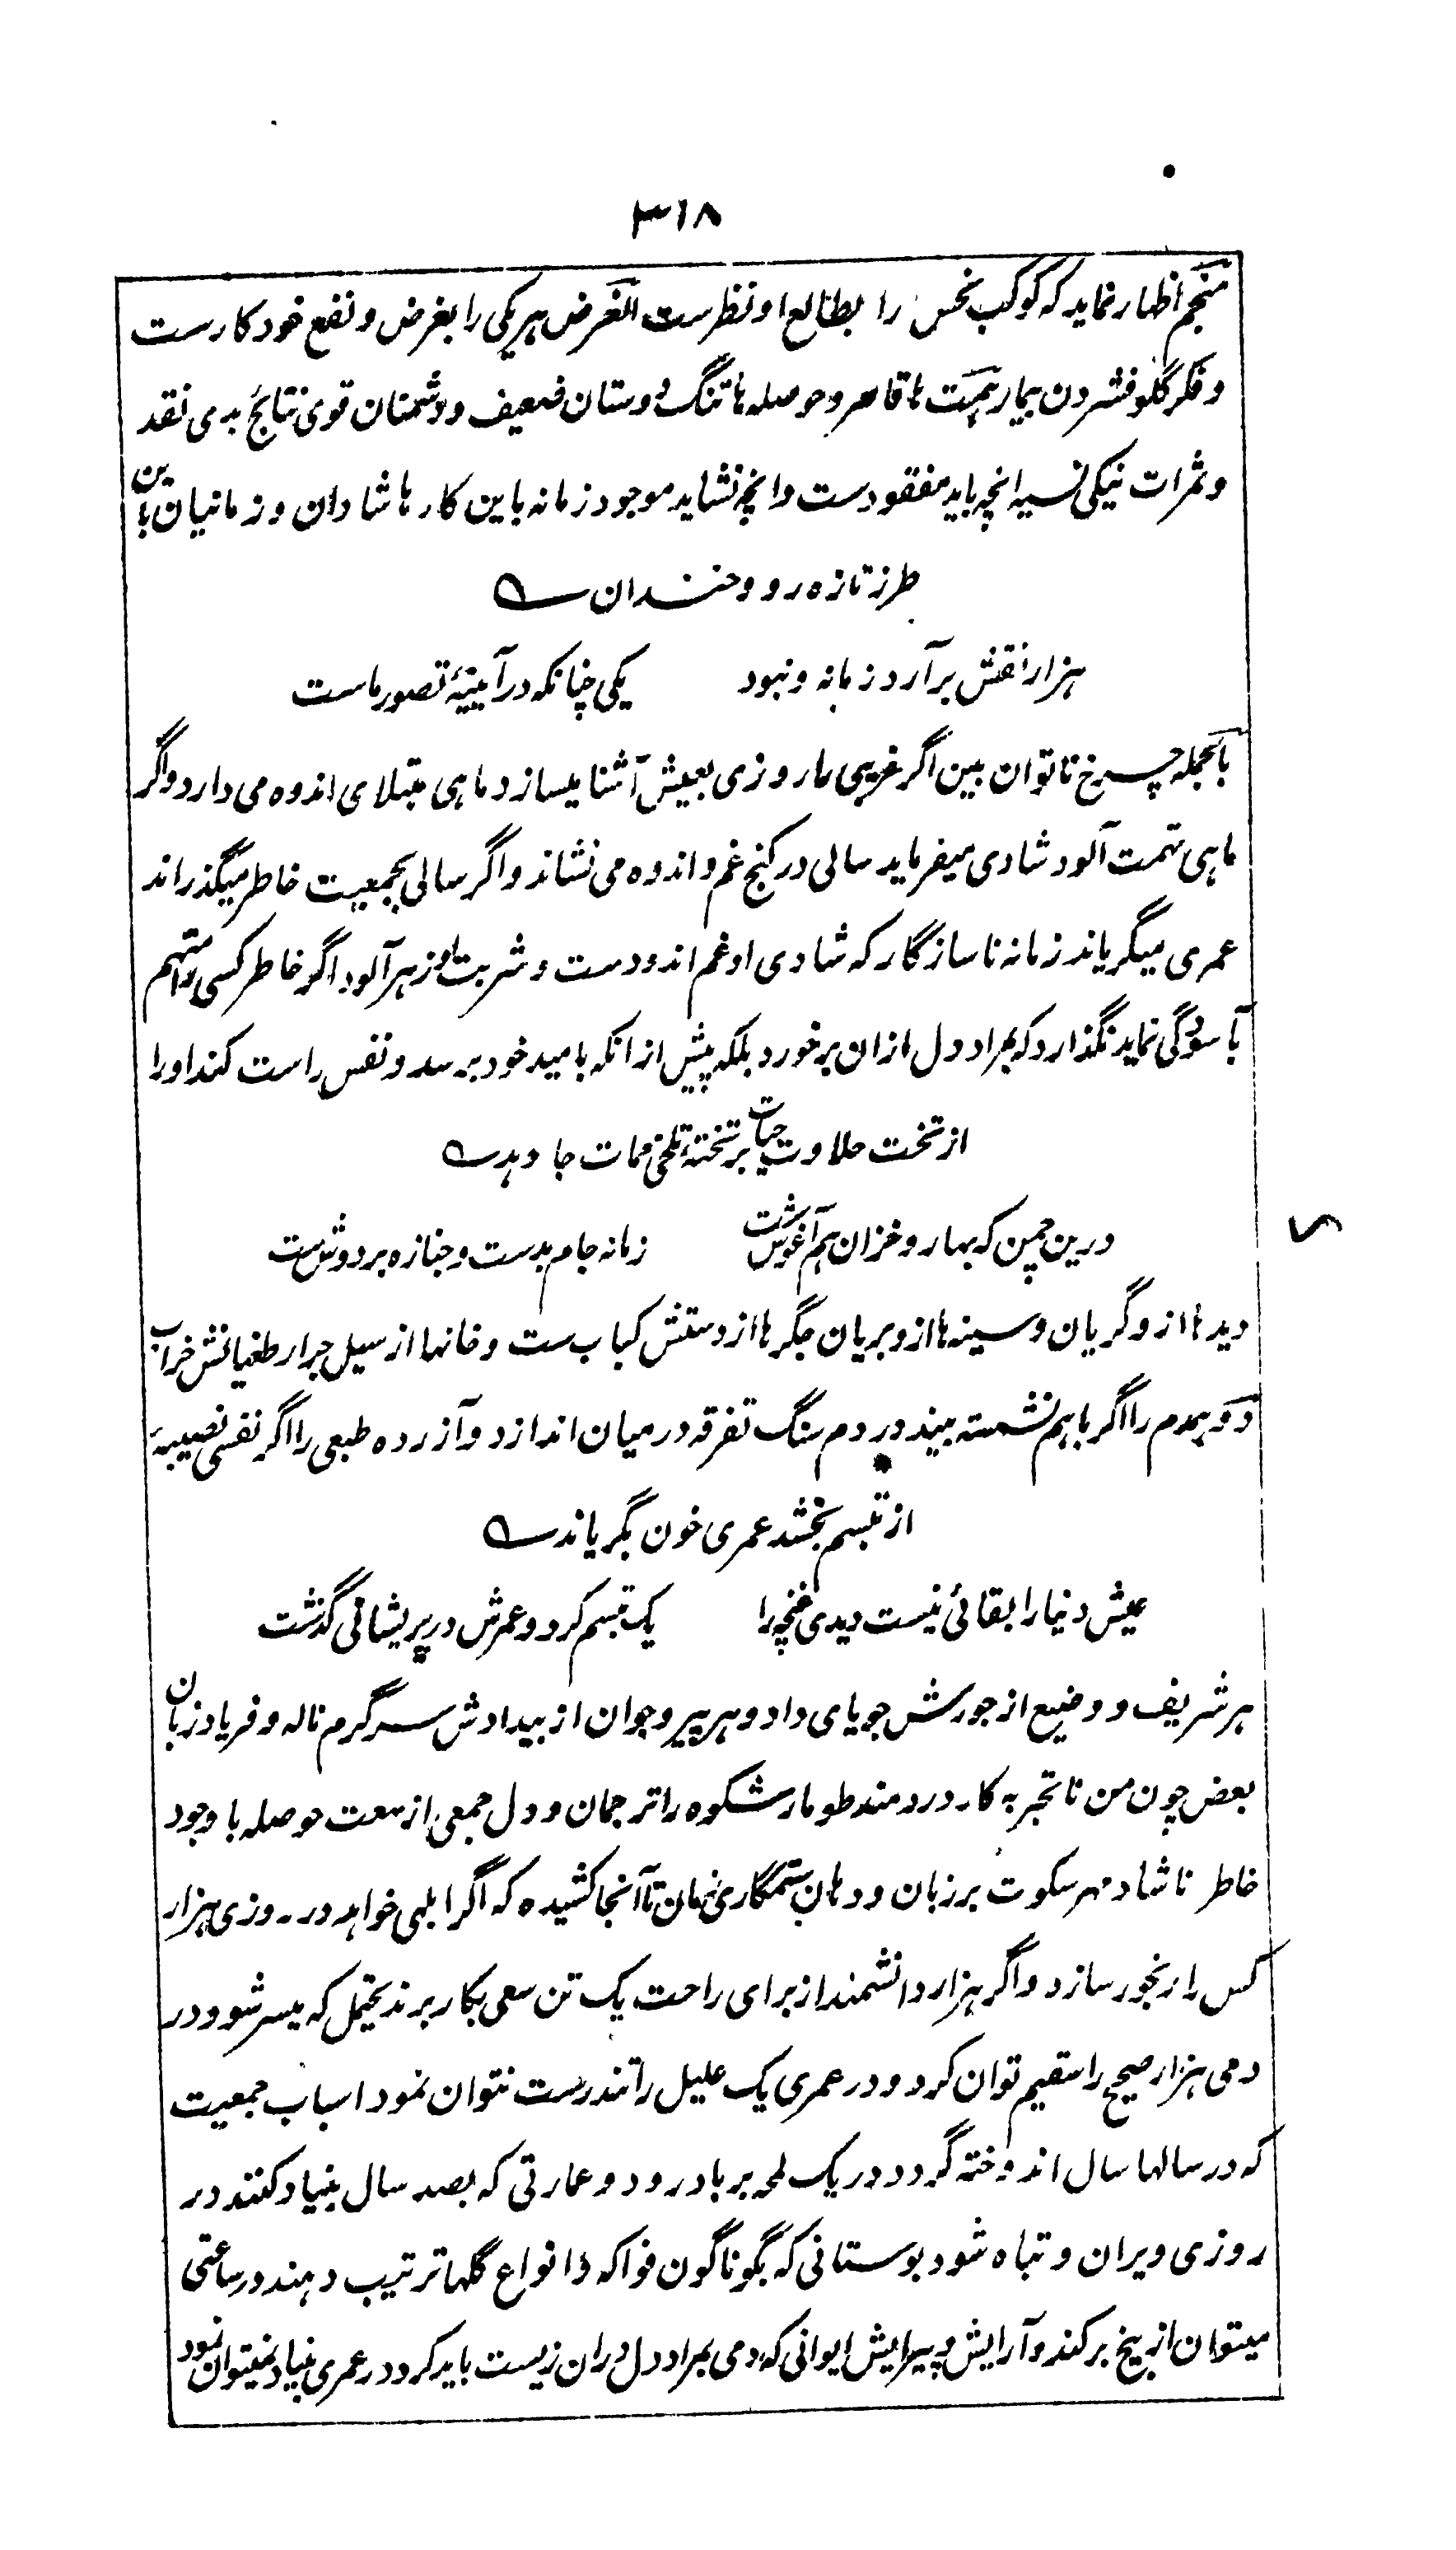 ۳۱۸
منجم اظهار نماید که کوکب نحس را بطالع او نظرست الغرض هر یکی را بغرض و نفع خود کارست
و فکر گلو فشردن بیمار همت ها قاصر و حوصله ها تنگ دوستان ضعیف و دشمنان قوی نتایج بدی نقد
و ثمرات نیکی نسیه انچه باید مفقودست وانچه نشاید موجود زمانه باین کارها شادان و زمانیان باین
طرز تازه رو و خندان ؎
هزار نقش برآرد زمانه و نبود یکی چنانکه در آیینۀ تصور ماست
بالجمله چرخ ناتوان بین اگر غریبی را روزی بعیش آشنا میسازد ماهی مبتلای اندوه می دارد واگر
ماهی تهمت آلود شادی میفرماید سالی در کنج غم و اندوه می نشاند واگر سالی بجمعیت خاطر میگذراند
عمری میگریاند زمانه ناسازگار که شادی او غم اندودست و شربت او زهر آلود اگر خاطر کسی را متهم
بآسودگی نماید نگذارد که بمراد دل ازان برخورد بلکه پیش از انکه بامید خود برسد و نفس راست کند اورا
از تخت حلاوت حیات بر تختۀ تلخی ممات جا دهد ؎
درین چمن که بهار و خزان هم آغوشست زمانه جام بدست و جنازه بر دوشست
دیدها ازو گریان و سینه ها ازو بریان جگرها از دستش کباب ست و خانها از سیل جرار طغیانش خراب
دو همدم را اگر باهم نشسته بیند در دم سنگ تفرقه در میان اندازد و آزرده طبعی را اگر نفسی نصیبۀ
از تبسم بخشد عمری خون بگریاند ؎
عیش دنیا را بقائی نیست دیدی غنچه را یک تبسم کرد و عمرش در پریشانی گذشت
هر شریف و وضیع از جورش جویای داد و هر پیر و جوان از بیدادش سرگرم ناله و فریاد زبان
بعض چون من ناتجربه کار دردمند طومار شکوه را ترجمان و دل جمعی از سعت حوصله با وجود
خاطر ناشاد مهر سکوت بر زبان و دهان ستمگاری زمان تا آنجا کشیده که اگر ابلهی خواهد در روزی هزار
کس را رنجور سازد واگر هزار دانشمند از برای راحت یک تن سعی بکار برند یحتمل که میسر شود و در
دمی هزار صحیح را سقیم توان کرد و در عمری یک علیل را تندرست نتوان نمود اسباب جمعیت
که در سالها سال اندوخته گردد در یک لمحه بر باد رود و عمارتی که بصد سال بنیاد کنند در
روزی ویران و تباه شود بوستانی که بگوناگون فواکه و انواع گلها ترتیب دهند در ساعتی
میتوان از بیخ برکند و آرایش و پیرایش ایوانی که دمی بمراد دل دران زیست باید کرد در عمری بنیاد نمیتوان نمود